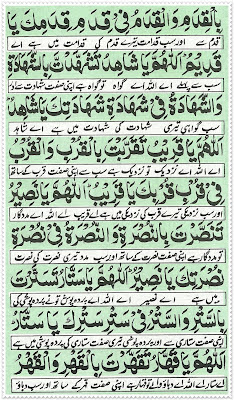 بِالْقِدَمِ وَالْقِدَمُ فِيْ قِدَمِ قِدَمِكَ يَا
قدم سے اور سب قدامت تیرے قدم کی قدامت میں ہے اے
قَدِيْمُ اَللّٰهُمَّ يَا شَاهِدُ تَشَهَّدْتَ بِالشَّهَادَةِ
سب سے پہلے اے اللہ اے گواہ تو گواہ ہے اپنی صفت شہادت سے
وَالشَّهَادَةُ فِيْ شَهَادَةِ شَهَادَتِكَ يَا شَاهِدُ
سب گواہی تیری شہادت کی شہادت میں ہے اے شاہد
اَللّٰهُمَّ يَا قَرِيْبُ تَقَرَّبْتَ بِالْقُرْبِ وَالْقُرْبُ
اے اللہ اے نزدیک تو نزدیک ہے اپنی صفت قرب کے ساتھ
فِيْ قُرْبِ قُرْبِكَ يَا قَرِيْبُ اَللّٰهُمَّ يَا نَصِيْرُ
اور سب نزدیکی تیرے قرب کی نزدیکی میں ہے اے قریب اے اللہ اے مددگار
تَنَصَّرْتَ بِالنُّصْرَةِ وَالنُّصْرَةُ فِيْ نُصْرَةِ
تو مددگار ہے اپنی صفت نصرت کے ساتھ اور سب مدد تیری نصرت کی نصرت
نُصْرَتِكَ يَا نَصِيْرُ اَللّٰهُمَّ يَا سَتَّارُ تَسَتَّرْتَ
میں ہے اے نصیر اے اللہ اے پردہ پوش تونے پردہ پوشی کی
بِالسَّتْرِ وَالسَّتْرُ فِيْ سَتْرِ سَتْرِكَ يَا سَتَّارُ
اپنی صفت ستاری سے اور سب پردہ پوشی تیری صفت ستاری کی پردہ پوشی میں ہے
اَللّٰهُمَّ يَا قَهَّارُ تَقَهَّرْتَ بِالْقَهْرِ وَالْقَهْرُ
اے ستار اے اللہ اے دباؤ والے تو قہار ہے اپنی صفت قہر کے ساتھ اور سب دباؤ